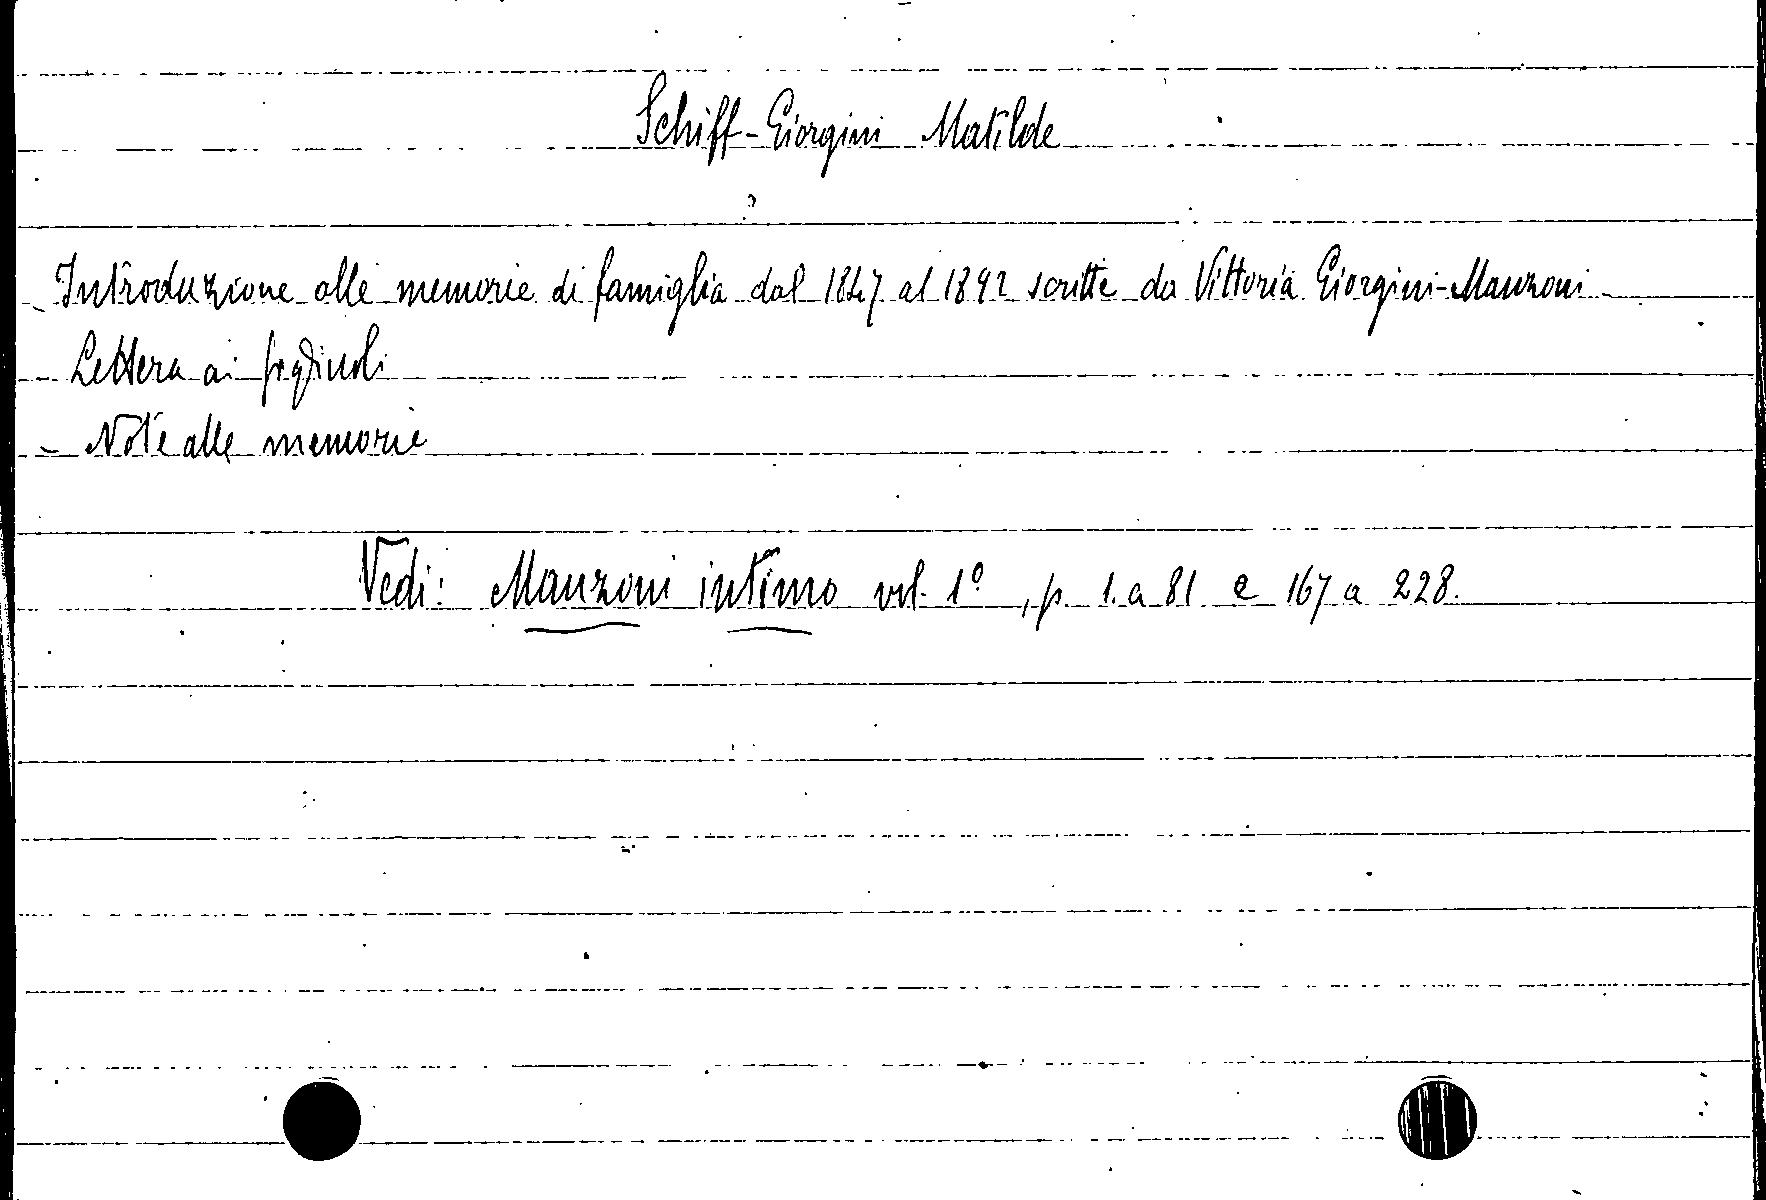 Schiff-Giorgini Matilde
- Introduzione alle memorie di famiglia dal 1847 al 1892 scritte da Vittoria Giorgini-Manzoni -
- Lettera ai figliuoli
- Note alle memorie
Vedi: Manzoni intimo vol. 1º, p. 1. a 81 e 167 a 228.